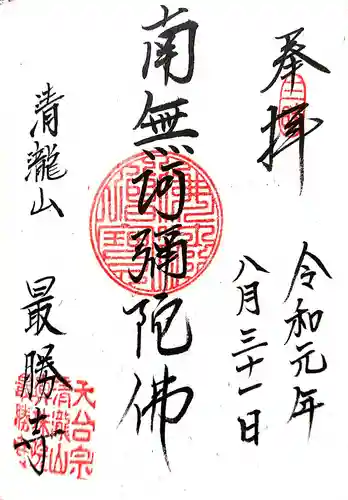 奉拝
令和元年
八月三十一日
南無阿彌陀佛
清瀧山
最勝寺
天台宗
清瀧山
最勝寺